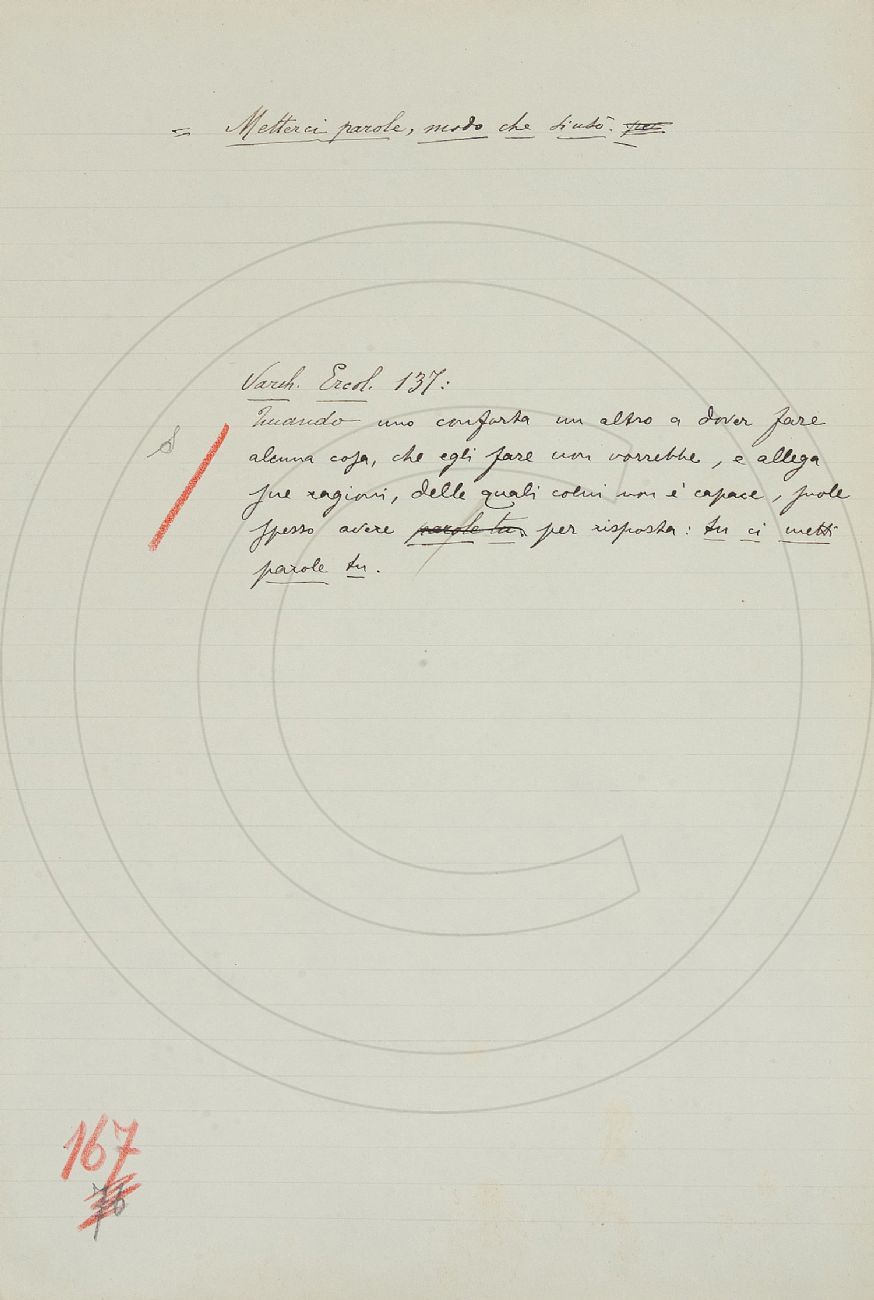 = Metterci parole, modo che si usò. per
Varch. Ercol. 137:
Quando uno conforta un altro a dover fare
alcuna cosa, che egli fare non vorrebbe, e allega
sue ragioni, delle quali colui non è capace, suole
spesso avere parole tu. per risposta: tu ci metti
parole tu.
S
167
76